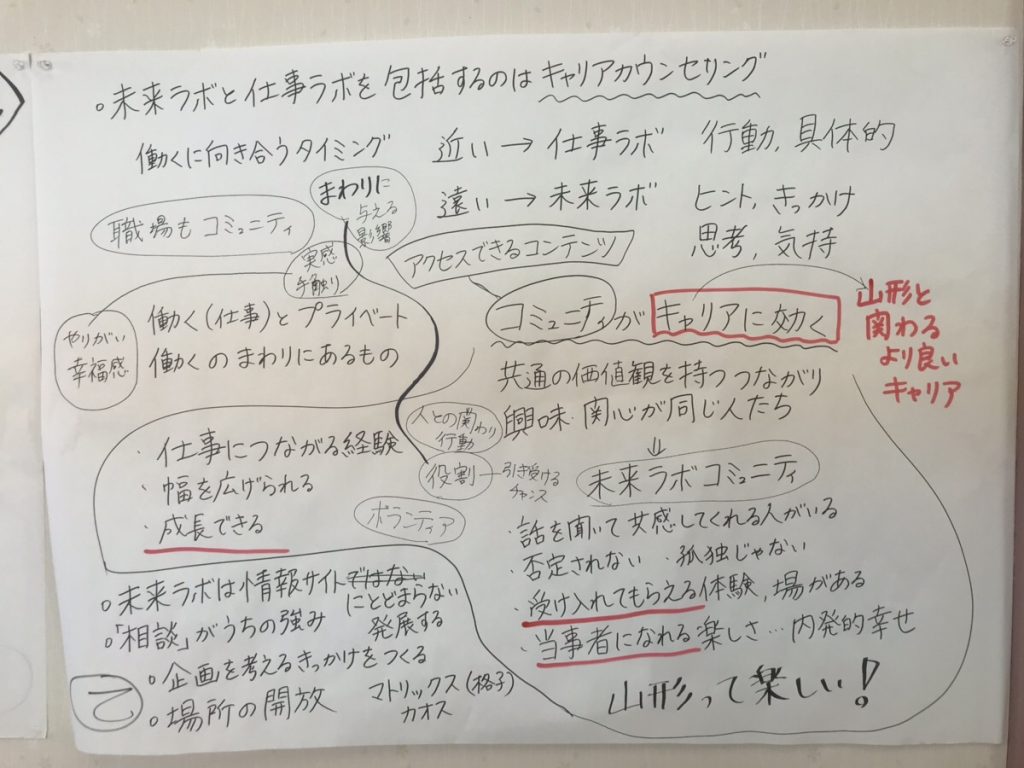 。未来ラボと仕事ラボを包括するのはキャリアカウンセリング
働くに向き合うタイミング
近い→仕事ラボ 行動, 具体的
遠い→未来ラボ ヒント, きっかけ
思考, 気持
まわりに
与える
影響
職場もコミュニティ
実感
手触り
アクセスできるコンテンツ
コミュニティがキャリアに効く
山形と
関わる
より良い
キャリア
やりがい
幸福感
働く(仕事)とプライベート
働くのまわりにあるもの
共通の価値観を持つつながり
興味・関心が同じ人たち
人との関わり
行動
役割―引き受ける
チャンス
ボランティア
・仕事につながる経験
・幅を広げられる
・成長できる
⇓
未来ラボコミュニティ
・話を聞いて共感してくれる人がいる
・否定されない ・孤独じゃない
・受け入れてもらえる体験, 場がある
・当事者になれる楽しさ…内発的幸せ
山形って楽しい!
。未来ラボは情報サイトではない
にとどまらない
発展する
。「相談」がうちの強み
。企画を考えるきっかけをつくる
。場所の開放
マトリックス(格子)
カオス